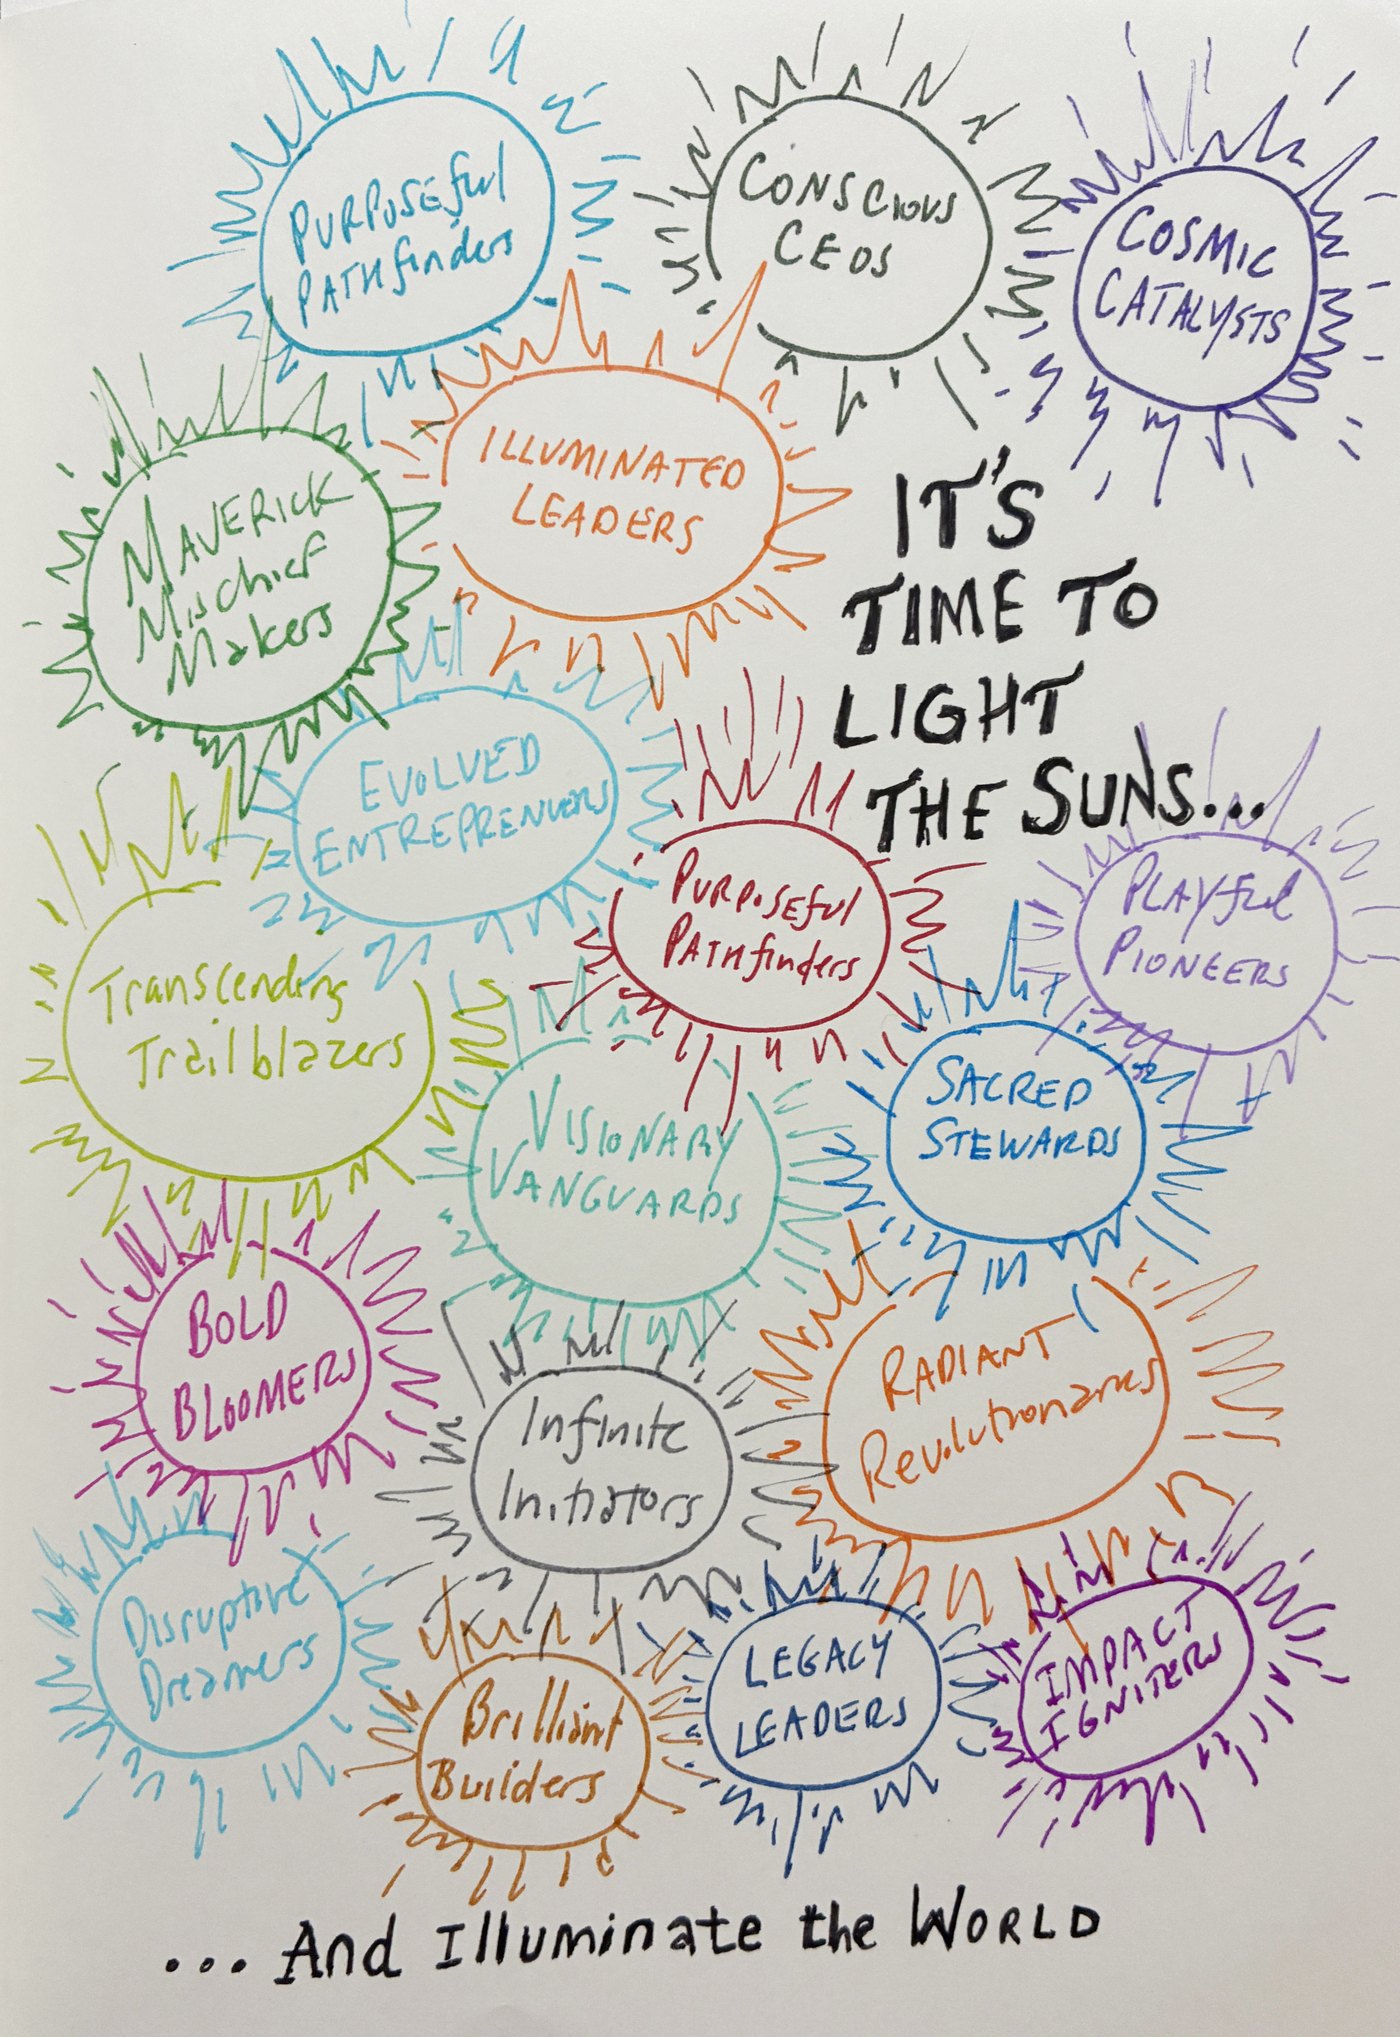 PURPOSEful
PATHfinders
CONSCIOUS
CEOS
COSMIC
CATALYSTS
ILLUMINATED
LEADERS
MAVERICK
MISchief
Makers
IT'S
TIME TO
LIGHT
THE SUNS...
EVOLVED
ENTREPRENUERS
PURPOSEful
PATHfinders
PLAYful
PIONEERS
Transcending
Trailblazers
VISIONARY
VANGUARDS
SACRED
STEWARDS
BOLD
BLOOMERS
Infinite
Initiators
RADIANT
Revolutionaries
Disruptive
Dreamers
Brilliant
Builders
LEGACY
LEADERS
IMPACT
IGNITERS
... And Illuminate the WORLD